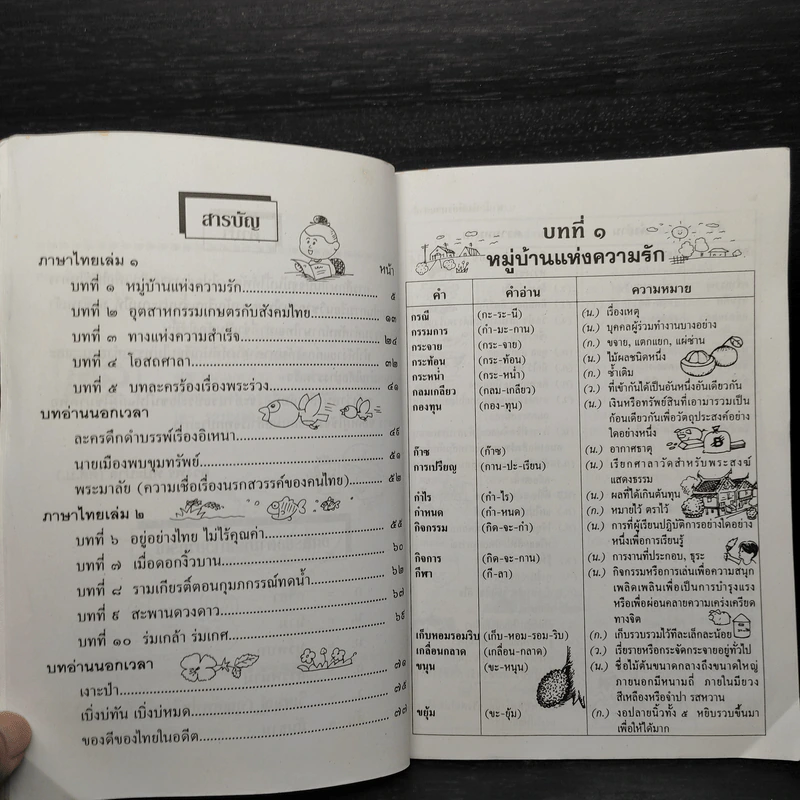 สารบัญ
ภาษาไทยเล่ม ๑
หน้า
บทที่ ๑ หมู่บ้านแห่งความรัก.......... ๕
บทที่ ๒ อุตสาหกรรมเกษตรกับสังคมไทย.......... ๑๓
บทที่ ๓ ทางแห่งความสำเร็จ.......... ๒๔
บทที่ ๔ โอสถศาลา.......... ๓๒
บทที่ ๕ บทละครร้องเรื่องพระร่วง.......... ๔๑
บทอ่านนอกเวลา
ละครดึกดำบรรพ์เรื่องอิเหนา.......... ๔๙
นายเมืองพบขุมทรัพย์.......... ๕๑
พระมาลัย (ความเชื่อเรื่องนรกสวรรค์ของคนไทย).......... ๕๒
ภาษาไทยเล่ม ๒
บทที่ ๖ อยู่อย่างไทย ไม่ไร้คุณค่า.......... ๕๕
บทที่ ๗ เมื่อดอกงิ้วบาน.......... ๖๐
บทที่ ๘ รามเกียรติ์ตอนกุมภกรรณทดน้ำ.......... ๖๒
บทที่ ๙ สะพานดวงดาว.......... ๖๗
บทที่ ๑๐ ร่มเกล้า ร่มเกศ.......... ๖๙
บทอ่านนอกเวลา
เงาะป่า.......... ๗๑
เบิ่งบ่ทัน เบิ่งบ่หมด.......... ๗๕
ของดีของไทยในอดีต.......... ๗๗
บทที่ ๑
หมู่บ้านแห่งความรัก
คำ คำอ่าน ความหมาย
กรณี (กะ-ระ-นี) (น.) เรื่องเหตุ
กรรมการ (กำ-มะ-กาน) (น.) บุคคลผู้ร่วมทำงานบางอย่าง
กระจาย (กระ-จาย) (ก.) ขจาย, แตกแยก, แผ่ซ่าน
กระท้อน (กระ-ท้อน) (น.) ไม้ผลชนิดหนึ่ง
กระหน่ำ (กระ-หน่ำ) (ก.) ซ้ำเติม
กลมเกลียว (กลม-เกลียว) (ว.) ที่เข้ากันได้เป็นอันหนึ่งอันเดียวกัน
กองทุน (กอง-ทุน) (น.) เงินหรือทรัพย์สินที่เอามารวมเป็น
ก้อนเดียวกันเพื่อวัตถุประสงค์อย่าง
ใดอย่างหนึ่ง
ก๊าซ (ก๊าซ) (น.) อากาศธาตุ
การเปรียญ (กาน-ปะ-เรียน) (น.) เรียกศาลาวัดสำหรับพระสงฆ์
แสดงธรรม
กำไร (กำ-ไร) (น.) ผลที่ได้เกินต้นทุน
กำหนด (กำ-หนด) (ก.) หมายไว้ ตราไว้
กิจกรรม (กิด-จะ-กำ) (น.) การที่ผู้เรียนปฏิบัติการอย่างใดอย่าง
หนึ่งเพื่อการเรียนรู้
กิจการ (กิด-จะ-กาน) (น.) การงานที่ประกอบ, ธุระ
กีฬา (กี-ลา) (น.) กิจกรรมหรือการเล่นเพื่อความสนุก
เพลิดเพลินเพื่อเป็นการบำรุงแรง
หรือเพื่อผ่อนคลายความเคร่งเครียด
ทางจิต
เก็บหอมรอมริบ (เก็บ-หอม-รอม-ริบ) (ก.) เก็บรวบรวมไว้ทีละเล็กละน้อย
เกลื่อนกลาด (เกลื่อน-กลาด) (ว.) เรี่ยรายหรือกระจัดกระจายอยู่ทั่วไป
ขนุน (ขะ-หนุน) (น.) ชื่อไม้ต้นขนาดกลางถึงขนาดใหญ่
ภายนอกมีหนามถี่ ภายในมียวง
สีเหลืองหรือจำปา รสหวาน
ขยุ้ม (ขะ-ยุ้ม) (ก.) งอปลายนิ้วทั้ง ๕ หยิบรวบขึ้นมา
เพื่อให้ได้มาก